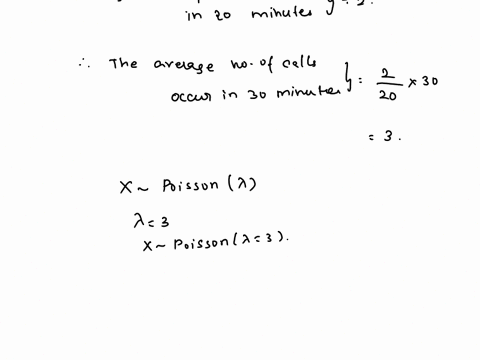 in 20 minutes } = 2.
∴ The average no. of calls
occur in 30 minutes } = 2/20 × 30
= 3.
X ~ Poisson (λ)
λ = 3
X ~ Poisson (λ = 3).